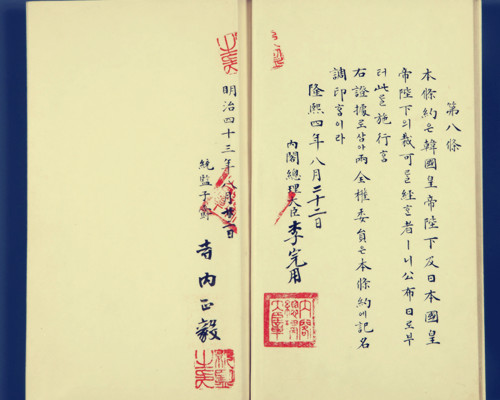 第八條
本條約은韓國皇帝陛下及日本國皇
帝陛下의裁可를經한者ㅣ니公布日로부
터此를施行홈
右證據로삼아兩全權委員은本條約에記名
調印홈이라
隆熙四年八月二十二日
內閣總理大臣李完用
內閣總理大臣章
明治四十三年八月廿二日
統監子爵 寺內正毅
統監之章